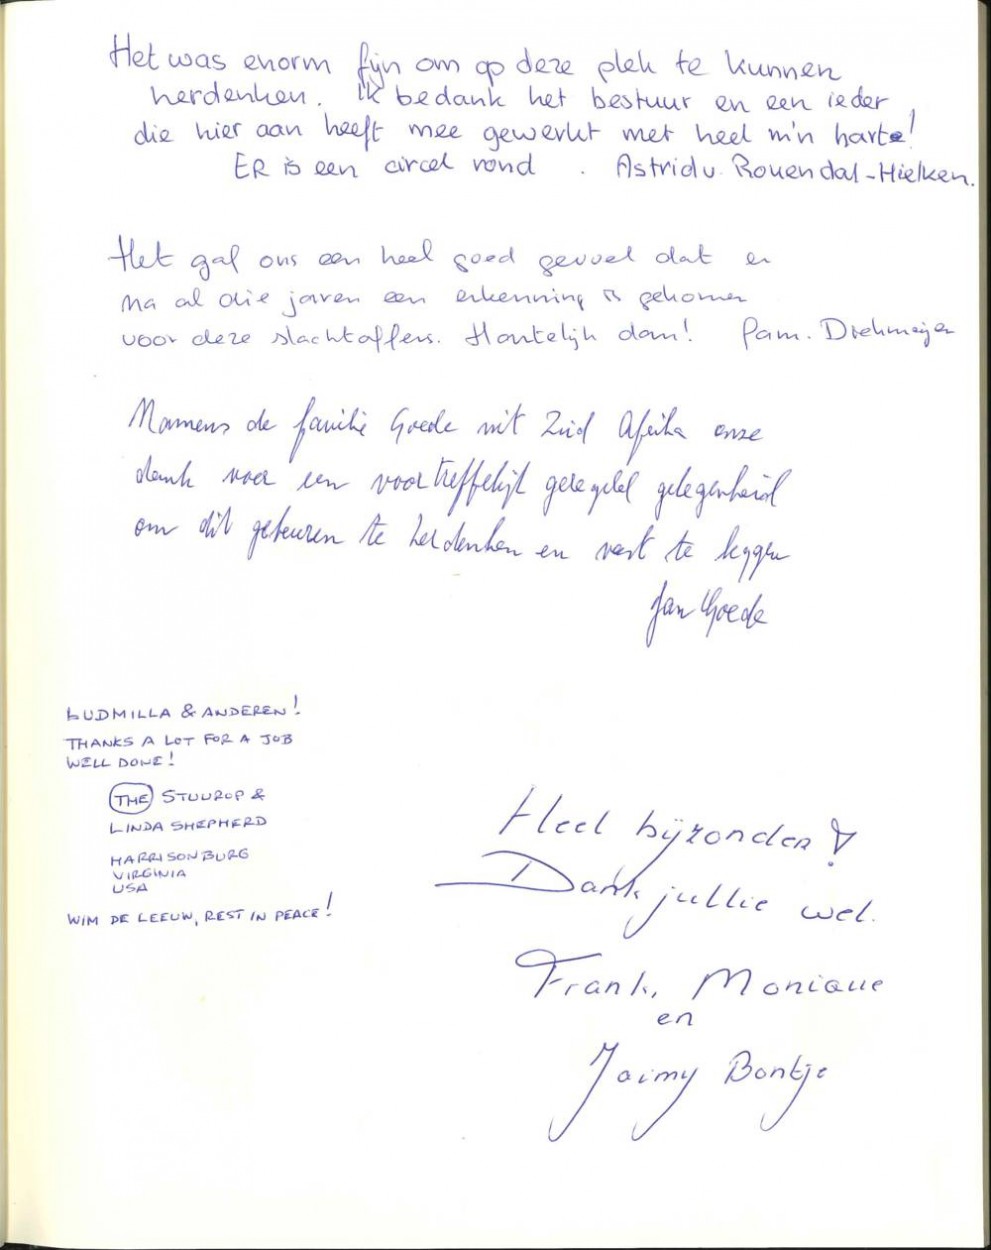 Het was enorm fijn om op deze plek te kunnen
herdenken. Ik bedank het bestuur en een ieder
die hier aan heeft mee gewerkt met heel m'n harte!
ER is een circel rond . Astrid v. Rouendal-Hielken.
Het gaf ons een heel goed gevoel dat er
na al die jaren een erkenning is gekomen
voor deze slachtoffers. Hartelijk dank! Fam. Drehmeijer
Namens de familie Goede uit Zuid Afrika onze
dank voor een voortreffelijk geregeld gelegenheid
om dit gebeuren te herdenken en vast te leggen
Jan Goede
LUDMILLA & ANDEREN!
THANKS A LOT FOR A JOB
WELL DONE!
THE STUUROP &
LINDA SHEPHERD
HARRISONBURG
VIRGINIA
USA
WIM DE LEEUW, REST IN PEACE!
Heel bijzonder!
Dank jullie wel.
Frank, Monique
en
Jaimy Bontje